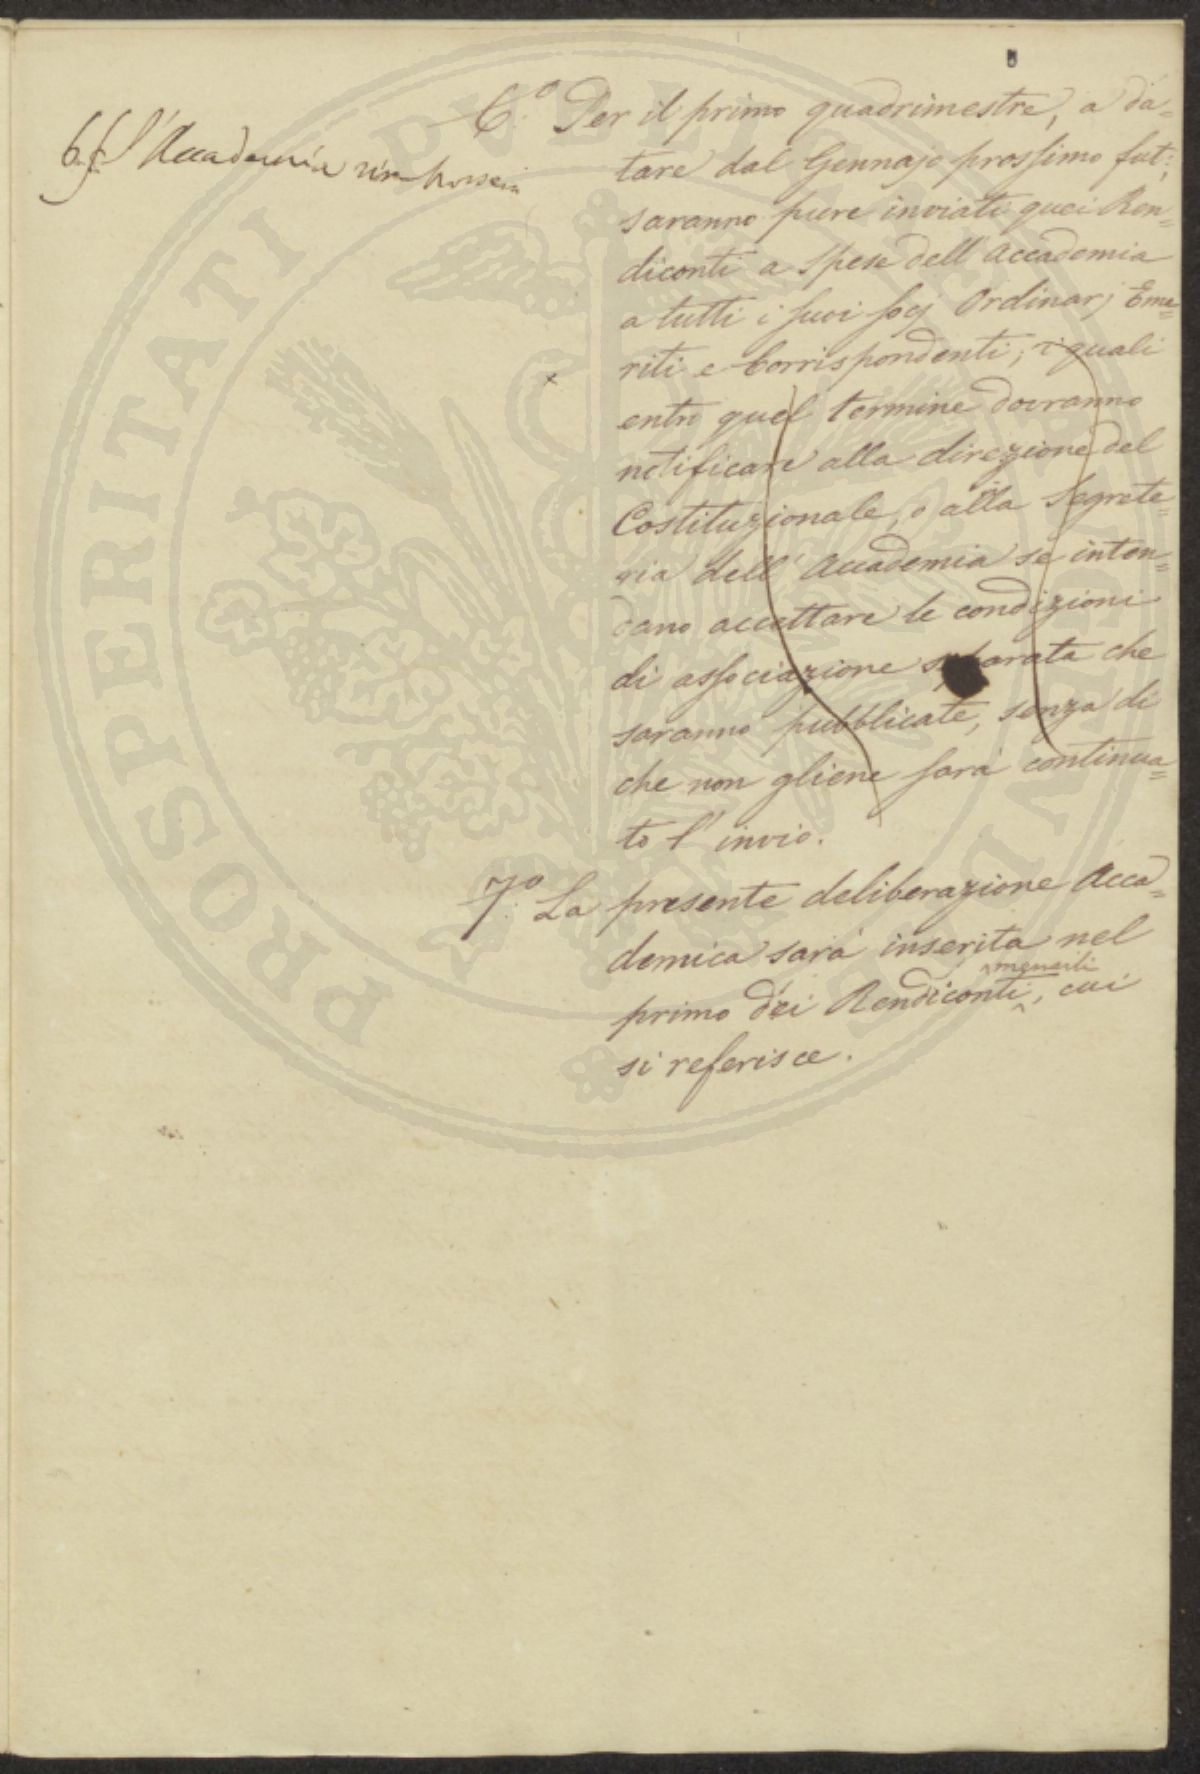 6.° Per il primo quadrimestre, a da=
tare dal Gennajo prossimo fut:,
saranno pure inviati quei Ren=
diconti a spese dell'Accademia
a tutti i suoi socj Ordinarj Eme=
riti e Corrispondenti; i quali
entro quel termine dovranno
notificare alla direzione del
Costituzionale, o alla Segrete=
ria dell'Accademia se inten=
dano accettare le condizioni
di associazione separata che
saranno pubblicate, senza di
che non gliene sarà continua=
to l'invio.
7.° La presente deliberazione Acca=
demica sarà inserita nel
primo dei Rendiconti mensili, cui
si referisce.
l'Accademia
PROSPERITATI PUBLICAE